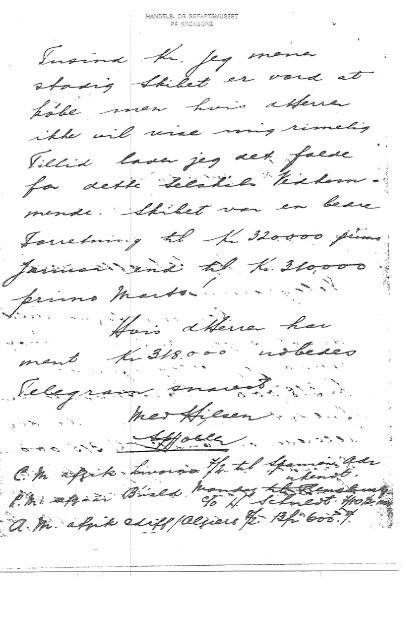 HANDELS- OG SØFARTSMUSEET
PÅ KRONBORG
Tusind Kr. Jeg mener
stadig Skibet er værd at
købe men hvis dHerrer
ikke vil vise mig rimelig
Tillid lader jeg det falde
for dette Selskabs Vedkom-
mende. Skibet var en bedre
Forretning til Kr 320,000 primo
Januar end til Kr. 310,000
primo Marts!
Hvis dHerrer har
ment Kr 318.000 udbedes
Telegram snarest.
Med Hilsen
C.M. afgik Livorno til Spanien
P.M. afgaar Mandag til
c/o H Schuldt
A.M. afgik Cardiff/Algiers